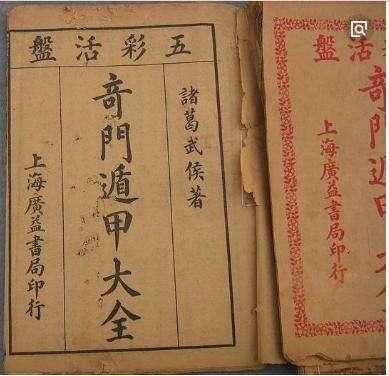 五彩活盤
諸葛武侯著
奇門遁甲大全
上海廣益書局印行
活盤
奇門遁甲大
上海廣益書局印行